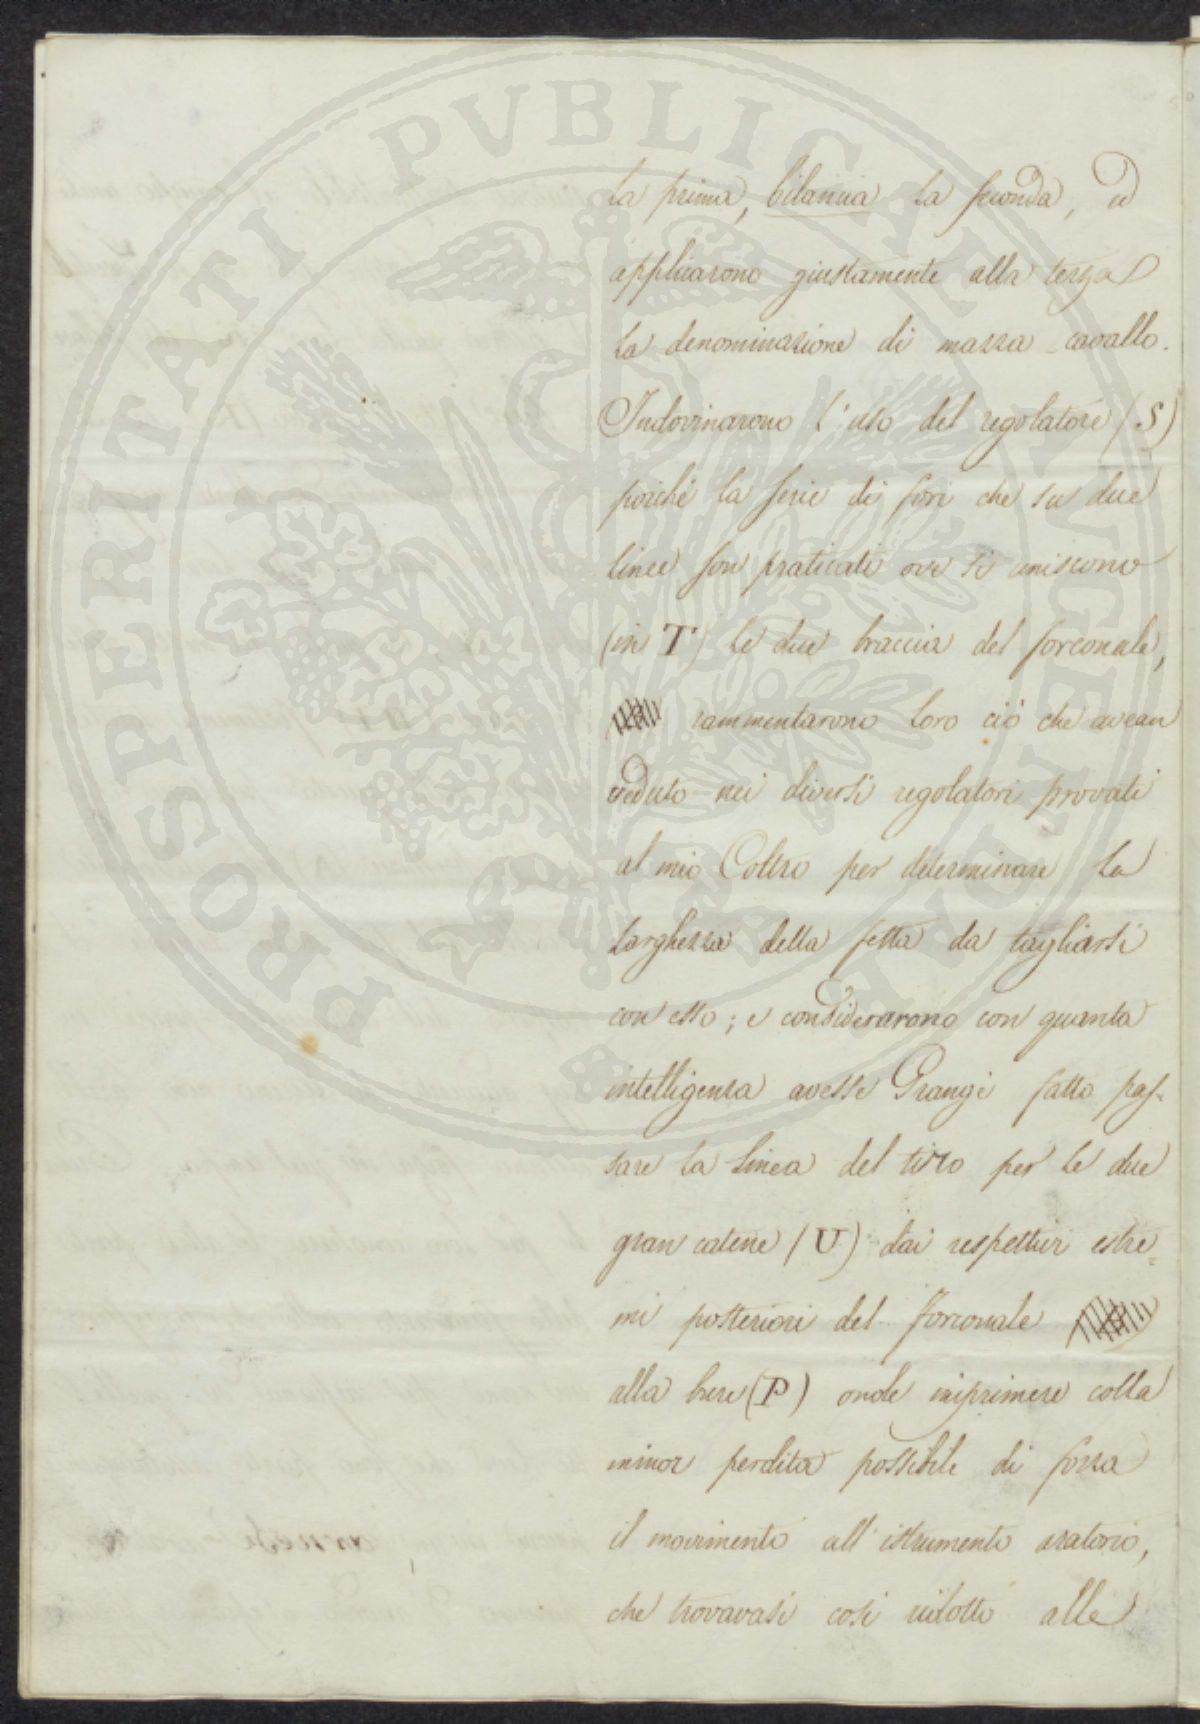 la prima, bilancia la seconda, ed
applicarono giustamente alla terza
la denominazione di mazza-cavallo.
Indovinarono l'uso del regolatore (S)
poichè la serie di fori che su due
linee son praticati ove si uniscono
(in T) le due braccia del forconale,
rammentarono loro ciò che avean
veduto nei diversi regolatori provati
al mio Coltro per determinare la
larghezza della fetta da tagliarsi
con esso; e considerarono con quanta
intelligenza avesse Grangè fatto pas-
sare la linea del tiro per le due
gran catene (U) dai respettivi estre=
mi posteriori del forconale
alla bure (P) onde imprimere colla
minor perdita possibile di forza
il movimento all'istrumento aratorio,
che trovavasi così ridotto alle
PROSPERITATI PVBLICAE AVGENDAE